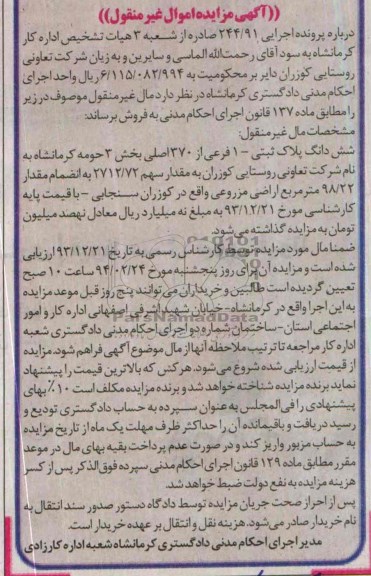 ((آگهی مزایده اموال غیر منقول))
درباره پرونده اجرایی ۲۴۴/۹۱ صادره از شعبه ۳ هیات تشخیص اداره کار
کرمانشاه به سود آقای رحمت‌الله الماسی و سایرین و به زیان شرکت تعاونی
روستایی کوزران دایر بر محکومیت به ۶/۱۱۵/۰۸۲/۹۹۴ ریال واحد اجرای
احکام مدنی دادگستری کرمانشاه در نظر دارد مال غیر منقول موصوف در زیر
را مطابق ماده ۱۳۷ قانون اجرای احکام مدنی به فروش برساند:
مشخصات مال غیر منقول:
شش دانگ پلاک ثبتی ۱۰ فرعی از ۳۷۰ اصلی بخش ۳ حومه کرمانشاه به
نام شرکت تعاونی روستایی کوزران به مقدار سهم ۲۷۱۲/۷۲ به انضمام مقدار
۹۸/۲۲ مترمربع اراضی مزروعی واقع در کوزران سنجابی - با قیمت پایه
کارشناسی مورخ ۹۳/۱۲/۲۱ به مبلغ نه میلیارد ریال معادل نهصد میلیون
تومان به مزایده گذاشته می‌شود.
ضمنا مال مورد مزایده توسط کارشناس رسمی به تاریخ ۹۳/۱۲/۲۱ ارزیابی
شده است و مزایده آن برای روز پنجشنبه مورخ ۹۴/۰۲/۲۴ ساعت ۱۰ صبح
تعیین گردیده است طالبین و خریداران می‌توانند پنج روز قبل موعد مزایده
به این اجرا واقع در کرمانشاه - خیابان شهید اشرفی اصفهانی اداره کار و امور
اجتماعی استان - ساختمان شماره دو اجرای احکام مدنی دادگستری شعبه
اداره کار مراجعه تا ترتیب ملاحظه آنها از مال موضوع آگهی فراهم شود. مزایده
از قیمت ارزیابی شده شروع می‌شود. هر کس که بالاترین قیمت را پیشنهاد
نماید برنده مزایده شناخته خواهد شد و برنده مزایده مکلف است ۱۰٪ بهای
پیشنهادی را فی‌المجلس به عنوان سپرده به حساب دادگستری تودیع و
رسید دریافت و باقیمانده آن را حداکثر ظرف مهلت یک ماه از تاریخ مزایده
به حساب مزبور واریز کند و در صورت عدم پرداخت بقیه بهای مال در موعد
مقرر مطابق ماده ۱۲۹ قانون اجرای احکام مدنی سپرده فوق‌الذکر پس از کسر
هزینه مزایده به نفع دولت ضبط خواهد شد.
پس از احراز صحت جریان مزایده توسط دادگاه دستور صدور سند انتقال به
نام خریدار صادر می‌شود. هزینه نقل و انتقال بر عهده خریدار است.
مدیر اجرای احکام مدنی دادگستری کرمانشاه شعبه اداره کار زادی